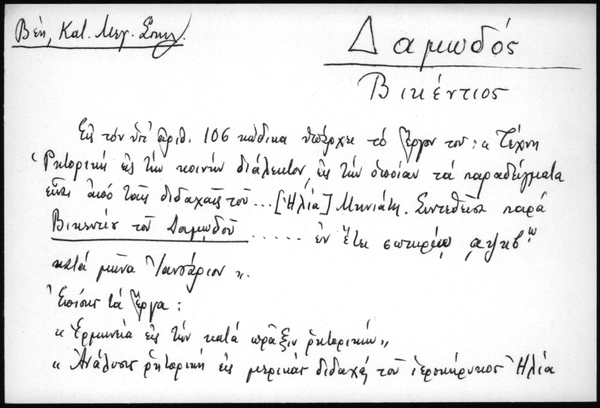 Βέη, Κατ. Μεγ. Σπηλ.
Δαμωδός
Βικέντιος
Εἰς τὸν ὑπ' ἀριθ. 106 κώδικα ὑπάρχει τὸ ἔργον του: «Τέχνη
Ρητορικὴ εἰς τὴν κοινὴν διάλεκτον, εἰς τὴν ὁποίαν τὰ παραδείγματα
εἶναι ἀπὸ ταῖς διδαχαῖς τοῦ ... [Ἠλία] Μηνιάτη. Συντεθεῖσα παρὰ
Βικεντίου τοῦ Δαμωδοῦ ..... ἐν ἔτει σωτηρίῳ
κατὰ μῆνα Ἰανουάριον».
Ἐπίσης τὰ ἔργα:
«Ἑρμηνεία εἰς τὴν κατὰ πρᾶξιν ῥητορικήν»
«Ἀνάλυσις ῥητορικὴ εἰς μερικὰς διδαχὰς τοῦ ἱεροκήρυκος Ἠλία